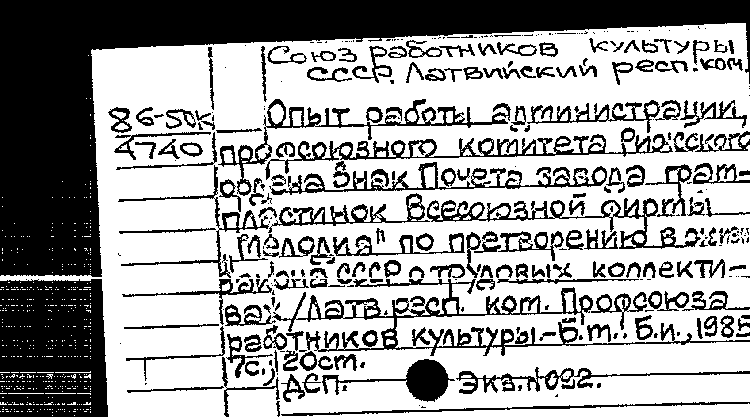 Союз работников культуры
СССР. Латвийский респ. ком.
86-50К Опыт работы администрации,
4740 профсоюзного комитета Рижского
ордена Знак Почета завода грам-
пластинок Всесоюзной фирмы
"Мелодия" по претворению в жизн
Закона СССР о трудовых коллекти-
вах / Латв. респ. ком. Профсоюза
работников культуры.-Б.м.: Б.и., 1985
7с.; 20см.
ДСП. Экз.N092.